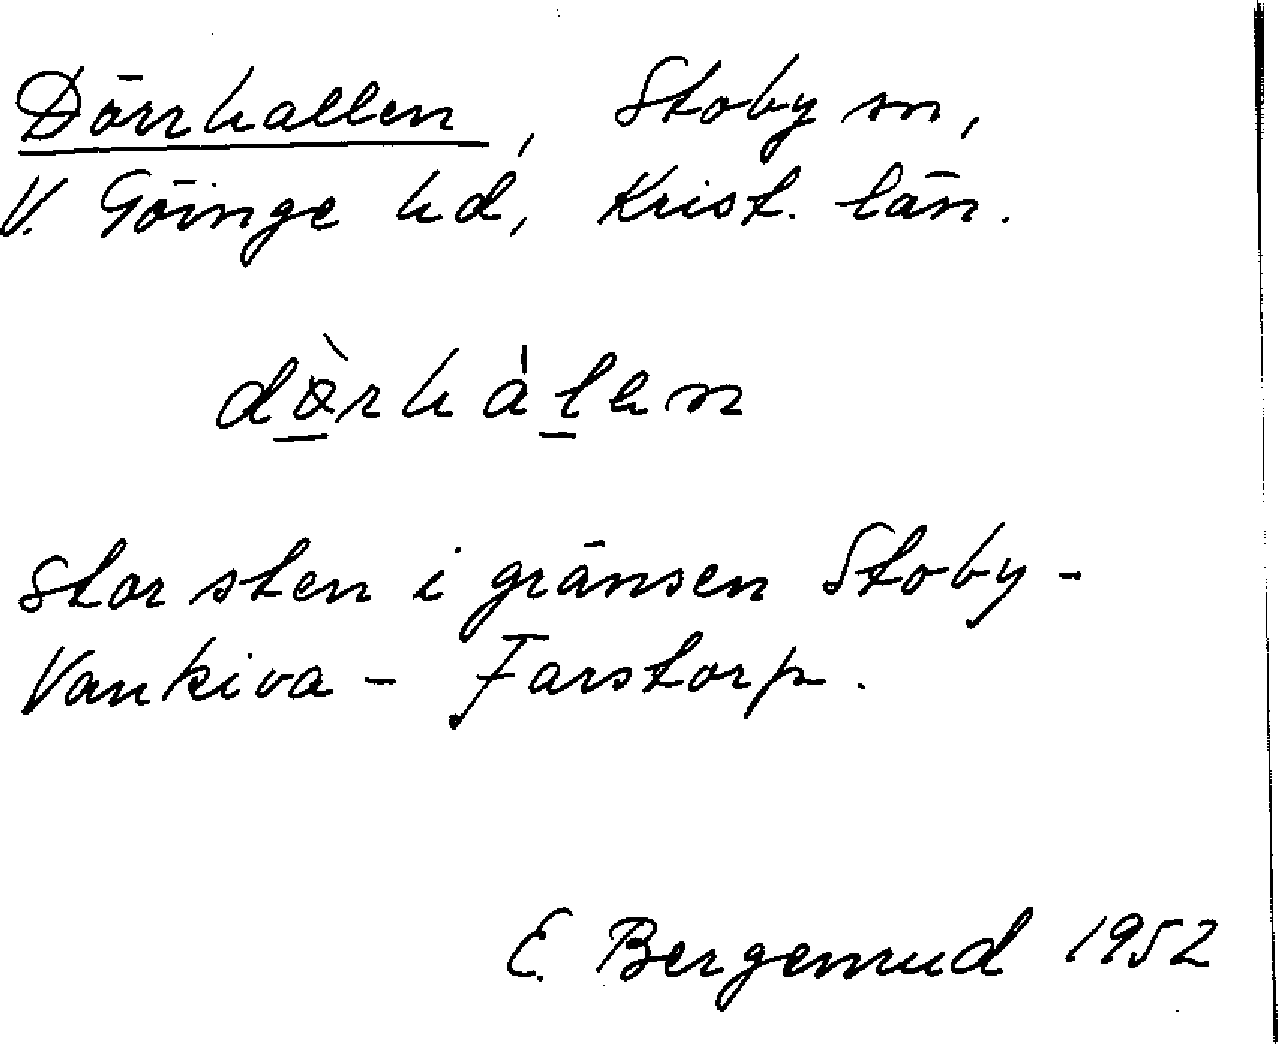 Dörrhallen, Stoby sn,
V. Göinge hd, Krist. län.
dø̀rhàlen
Stor sten i gränsen Stoby-
Vankiva - Farstorp.
E. Bergenrud 1952